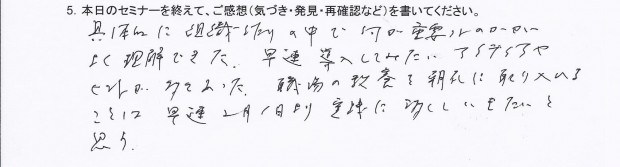 5. 本日のセミナーを終えて、ご感想(気づき・発見・再確認など)を書いてください。
具体的に組織づくりの中で何が重要なのかが
よく理解できた。早速導入してみたいアイディアや
ヒントが多くあった。職場の教養を朝礼に取り入れる
ことは早速2月1日より実践に移していきたいと
思う。